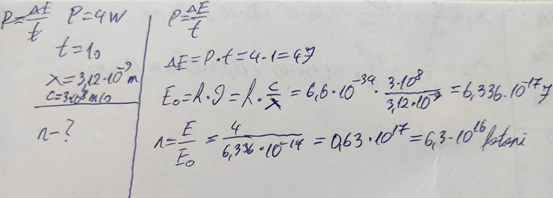 P=ΔE/t P=4W
t=1s
λ=3,12·10⁻⁹ m
c=3·10⁸ m/s
n-?
P=ΔE/t
ΔE=P·t=4·1=4J
E₀=h·ν=h·c/λ=6,6·10⁻³⁴·3·10⁸/3,12·10⁻⁹=6,336·10⁻¹⁷J
n=E/E₀=4/6,336·10⁻¹⁷=0,63·10¹⁷=6,3·10¹⁶ fotoni